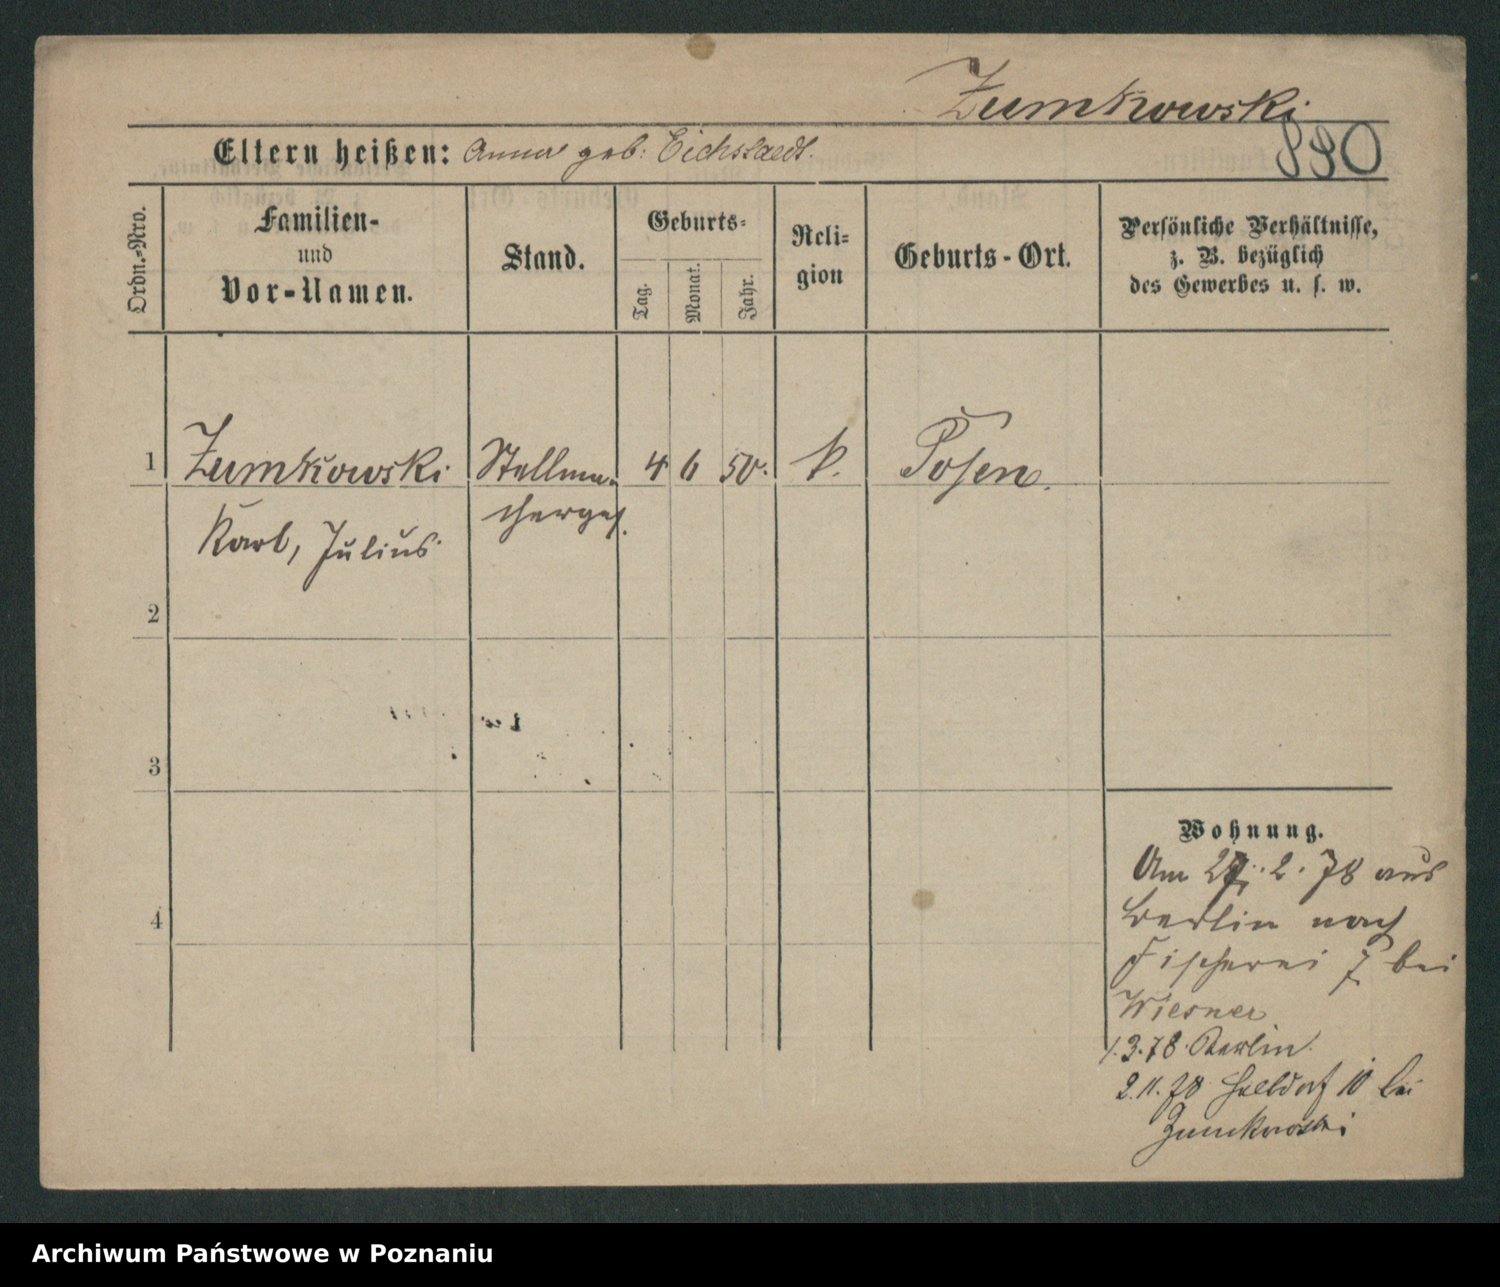 Zumkowski
890
Eltern heißen: Anna geb: Eichstaedt.
Ordn.-Nro.
Familien-
und
Vor-Namen.
Stand.
Geburts-
Tag.
Monat.
Jahr.
Reli-
gion
Geburts-Ort.
Persönliche Verhältnisse,
z. B. bezüglich
des Gewerbes u. s. w.
1 Zumkowski Stellma- 4 6 50. k. Posen.
Karl, Julius. cherges.
2
3
4
Wohnung.
Am 27. 2. 78 aus
Berlin nach
Fischerei 7 bei
Wiesner
1.3.78. Berlin.
2.11.78 10 bei
Zumkowski
Archiwum Państwowe w Poznaniu